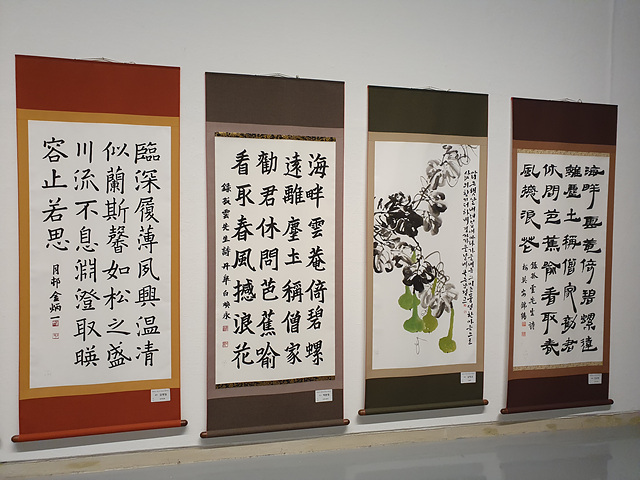 臨深履薄夙興温凊
似蘭斯馨如松之盛
川流不息淵澄取暎
容止若思
月邨金炳
海畔雲菴倚碧螺
遠離塵圡稱僧家
勸君休問芭蕉喻
看取春風撼浪花
錄孤雲先生詩
海畔雲菴倚碧螺遠
離塵土稱僧家勸君
休問芭蕉喻看取春
風撼浪花
錄孤雲先生詩